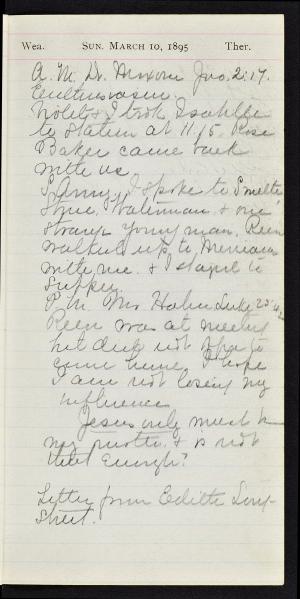 Wea. SUN. MARCH 10, 1895 Ther.
A. M. Dr. Moxom Jno. 2:17.
Enthusiasm.
Violet & I took Isabelle
to station at 11.15. Rose
Baker came back
with us
S. Army. I spoke to Smelt
Stone, Waterman & one
strange young man. Reen
walked up to Merriams
with me & I stayed to
supper.
P. M. Mr Hahn Luke
Reen was at meeting
but did not to
come home. I hope
I am not losing my
influence
Jesus only must be
my motto & is not
that enough?
Letter from Edith Long-
street.